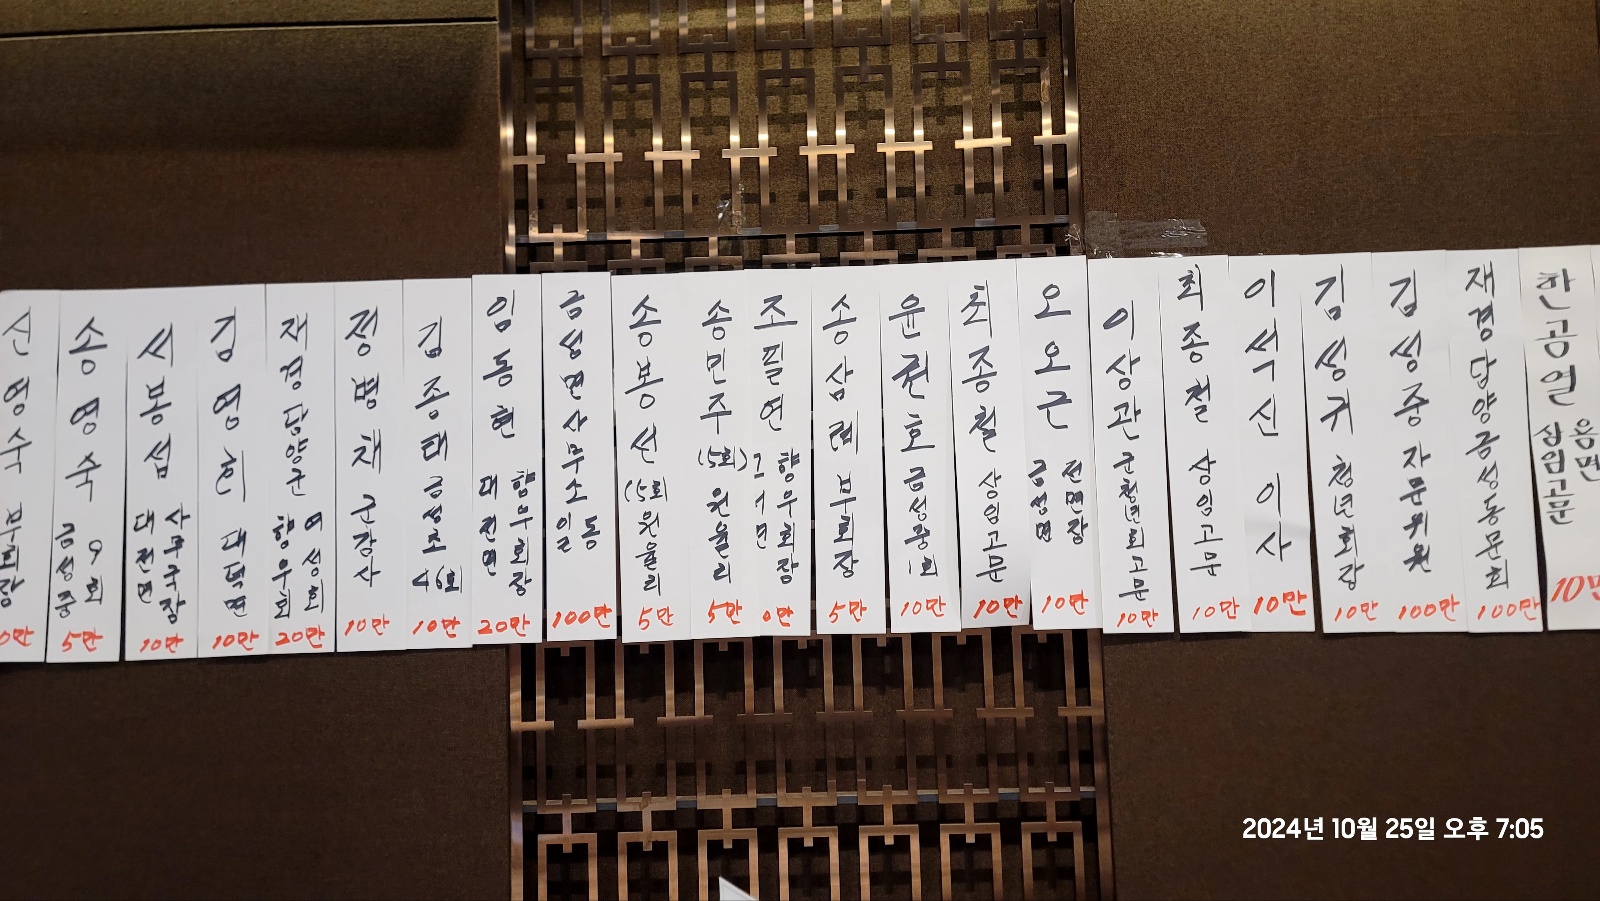 신영숙 부회장
0만
송영숙 금성중 9회
5만
서봉섭 대전면 사무국장
10만
김영희 대덕면
10만
재경담양군 향우회 여성회
20만
정병채 군감사
10만
김종태 금성초 46회
10만
임동현 대전면 향우회장
20만
금성면사무소 일동
100만
송봉선 (5회) 원율리
5만
송민주 (5회) 원율리
5만
조필연 향우회장
0만
송삼례 부회장
5만
윤권호 금성중 1회
10만
최종철 상임고문
10만
오오근 금성면 전면장
10만
이상관 군청년회고문
10만
최종철 상임고문
10만
이석신 이사
10만
김성귀 청년회장
10만
김성중 자문위원
100만
재경담양금성동문회
100만
한공열 상임고문 음면
10만
2024년 10월 25일 오후 7:05